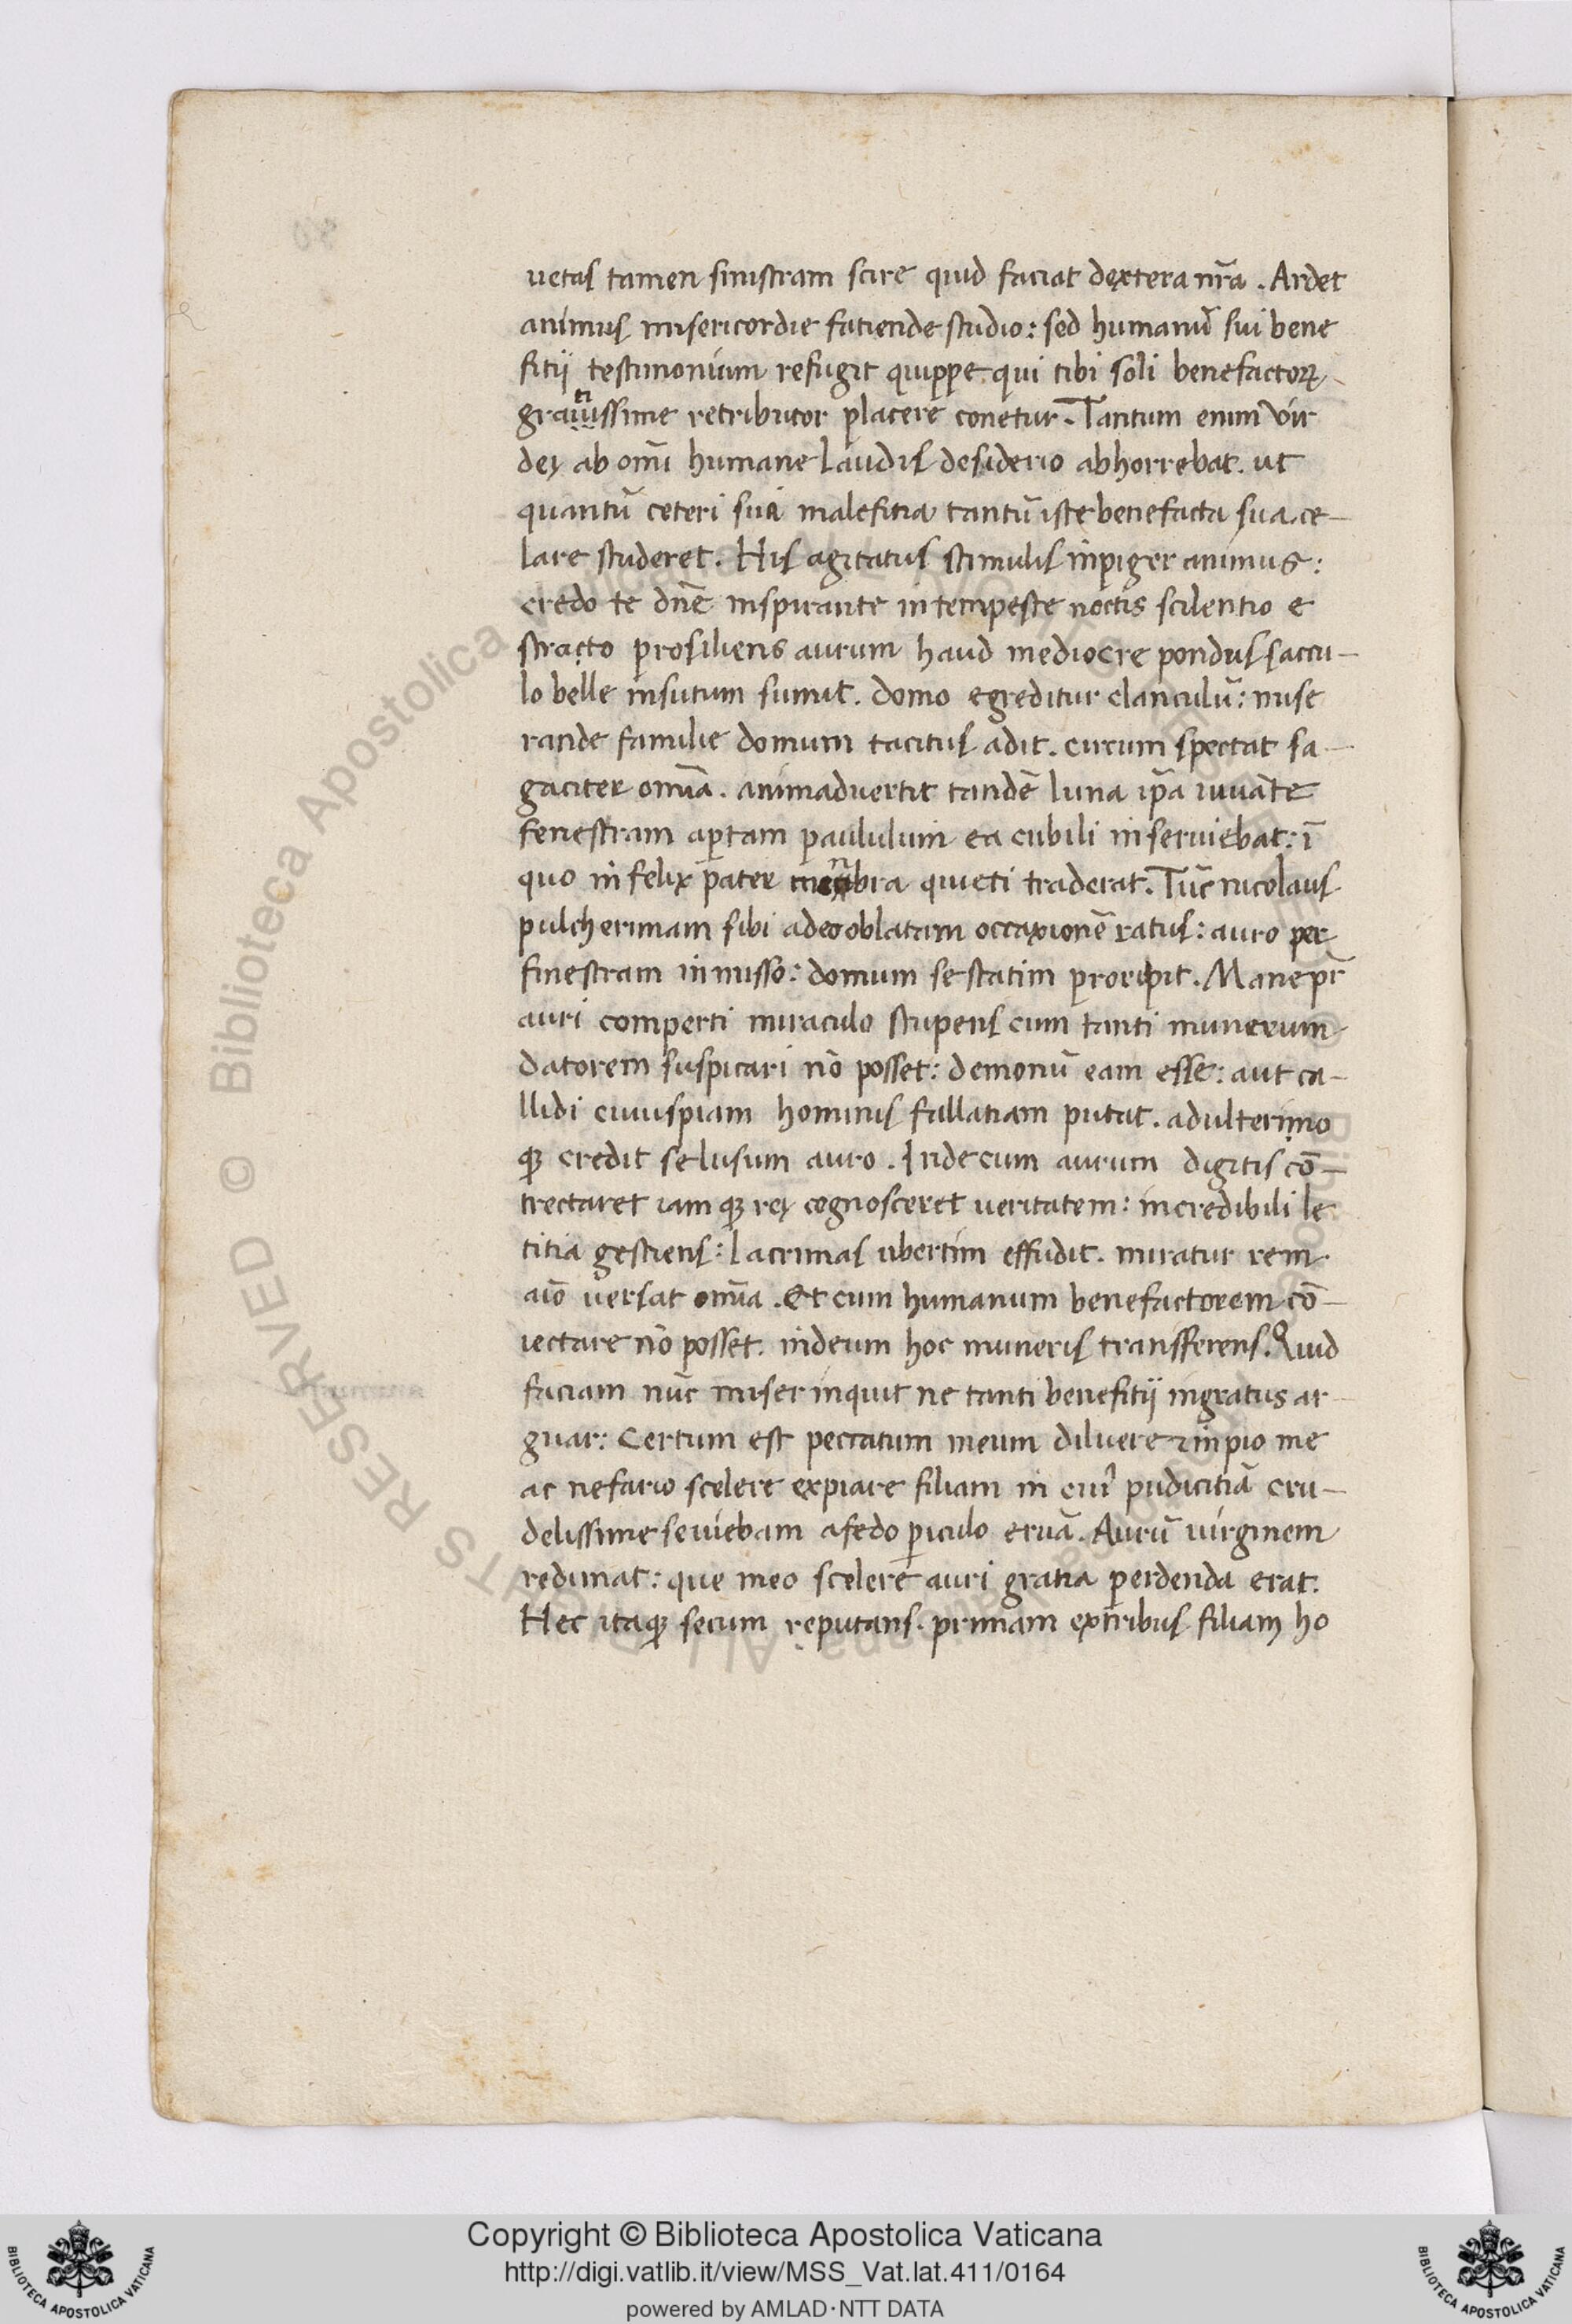 uetas tamen sinistram scire quid faciat dextera nr̃a . Ardet
animus misericordie fatiende studio : sed humanũ sui bene
fitij testimonium refugit quippe qui tibi soli benefactoꝝ
gratiissime retributor placere conetur . Tantum enim vir
dej ab om̃i humane laudis desiderio abhorrebat . ut
quantũ ceteri sua malefitia tantũ iste benefacta sua ce-
lare studeret . His agitatus stimulis inpiger animus :
credo te dñe inspirante intempeste noctis scilentio e
stracto prosiliens aurum haud mediocre pondus saccu-
lo belle insutum sumit . domo egreditur clanculũ : mise
rande familie domum tacitus adit . circum spectat sa-
gaciter om̃ia . animaduertit tandẽ luna ip̃a iuuãte
fenestram aꝑtam paululum ea cubili inseruiebat : ĩ
quo infelix pater menbra quieti traderat . Tũc nicolaus
pulcherimam sibi adeo oblatam occaxionẽ ratus : auro per
finestram inmisso : domum se statim proripit . Mane pr̃
auri comperti miraculo stupens cum tanti munerum
datorem suspicari nõ posset : demonũ eam esse : aut ca-
llidi cuiuspiam hominis fallatiam putat . adulterimo
qꝫ credit se lusum auro . Inde cum aurum digitis cõ-
trectaret iam qꝫ rej cognosceret ueritatem : incredibili le
titia gestiens : lacrimas ubertim effudit . miratur rem .
aĩo uersat om̃ia . Et cum humanum benefactorem cõ-
iectare nõ posset . indeum hoc muneris transfferens . Quid
faciam nũc miser inquit ne tanti benefitij ingratus ar-
guar : Certum est peccatum meum diluere ⁊ inpio me
ac nefario scelere expiare filiam in cuiꝰ pudicitiã cru-
delissime seuiebam a fedo ꝑiculo eruã . Aurũ uirginem
redimat : que meo scelere auri gratia perdenda erat .
Hec itaqꝫ secum reputans . primam ex tribus filiam ho
© Biblioteca Apostolica Vaticana
Copyright © Biblioteca Apostolica Vaticana
http://digi.vatlib.it/view/MSS_Vat.lat.411/0164
powered by AMLAD·NTT DATA
BIBLIOTECA APOSTOLICA VATICANA
BIBLIOTECA APOSTOLICA VATICANA